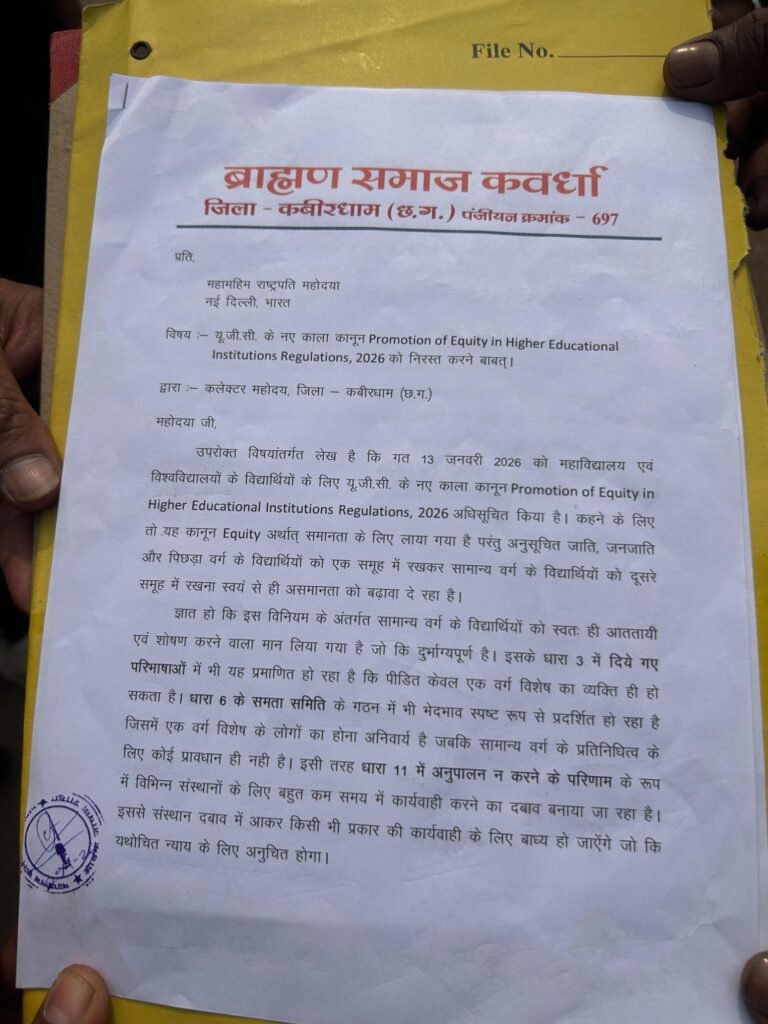 File No.
ब्राह्मण समाज कवर्धा
जिला - कबीरधाम (छ.ग.) पंजीयन क्रमांक - 697
प्रति,
महामहिम राष्ट्रपति महोदया
नई दिल्ली, भारत
विषय :– यू.जी.सी. के नए काला कानून Promotion of Equity in Higher Educational
Institutions Regulations, 2026 को निरस्त करने बाबत्।
द्वारा :– कलेक्टर महोदय, जिला – कबीरधाम (छ.ग.)
महोदया जी,
उपरोक्त विषयांतर्गत लेख है कि गत 13 जनवरी 2026 को महाविद्यालय एवं
विश्वविद्यालयों के विद्यार्थियों के लिए यू.जी.सी. के नए काला कानून Promotion of Equity in
Higher Educational Institutions Regulations, 2026 अधिसूचित किया है। कहने के लिए
तो यह कानून Equity अर्थात् समानता के लिए लाया गया है परंतु अनुसूचित जाति, जनजाति
और पिछड़ा वर्ग के विद्यार्थियों को एक समूह में रखकर सामान्य वर्ग के विद्यार्थियों को दूसरे
समूह में रखना स्वयं से ही असमानता को बढ़ावा दे रहा है।
ज्ञात हो कि इस विनियम के अंतर्गत सामान्य वर्ग के विद्यार्थियों को स्वतः ही आततायी
एवं शोषण करने वाला मान लिया गया है जो कि दुर्भाग्यपूर्ण है। इसके धारा 3 में दिये गए
परिभाषाओं में भी यह प्रमाणित हो रहा है कि पीडित केवल एक वर्ग विशेष का व्यक्ति ही हो
सकता है। धारा 6 के समता समिति के गठन में भी भेदभाव स्पष्ट रूप से प्रदर्शित हो रहा है
जिसमें एक वर्ग विशेष के लोगों का होना अनिवार्य है जबकि सामान्य वर्ग के प्रतिनिधित्व के
लिए कोई प्रावधान ही नही है। इसी तरह धारा 11 में अनुपालन न करने के परिणाम के रूप
में विभिन्न संस्थानों के लिए बहुत कम समय में कार्यवाही करने का दबाव बनाया जा रहा है।
इससे संस्थान दबाव में आकर किसी भी प्रकार की कार्यवाही के लिए बाध्य हो जाऐंगे जो कि
यथोचित न्याय के लिए अनुचित होगा।